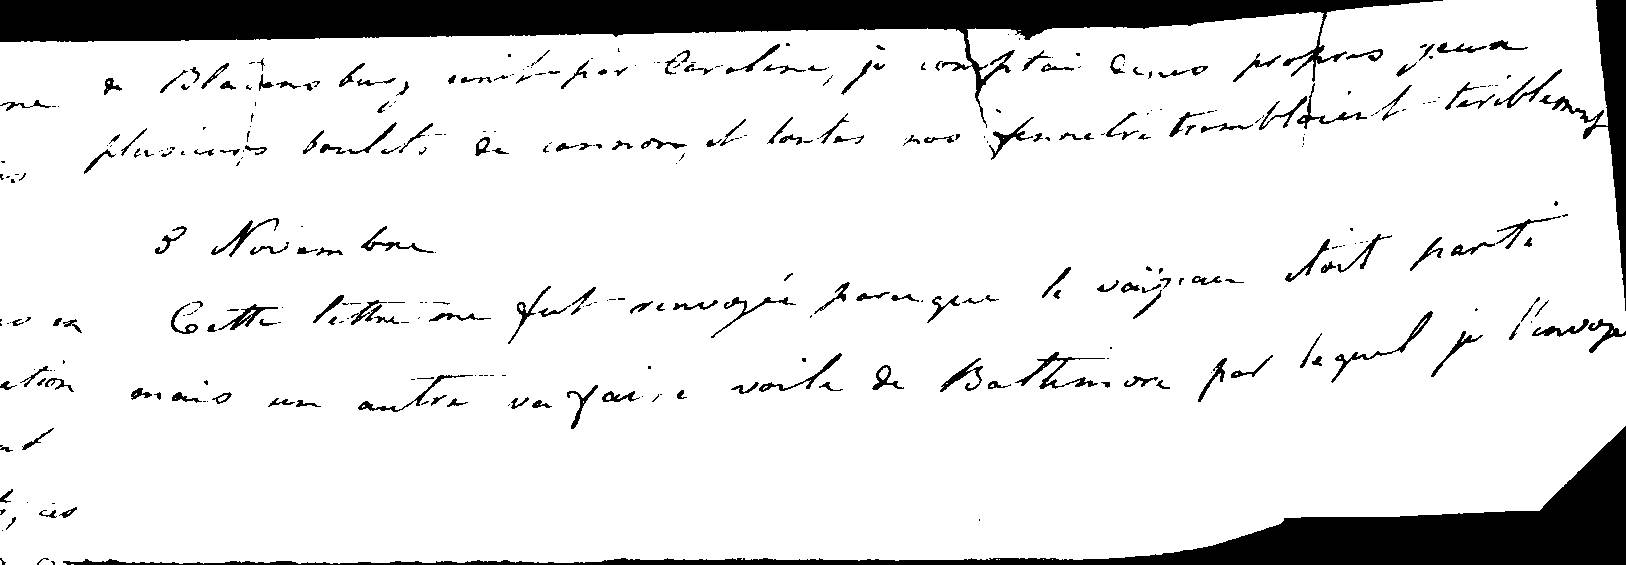 de Bladensburg écrite par Caroline, je comptai de mes propres yeux
ne
plusieurs boulets de cannon, et toutes nos fennetre trembloient teriblement
3 Novembre
Cette lettre me fut renvoyée parceque le vaisseau étoit parti
mais un autre va faire voile de Baltimore par lequel je l'envoye
ation